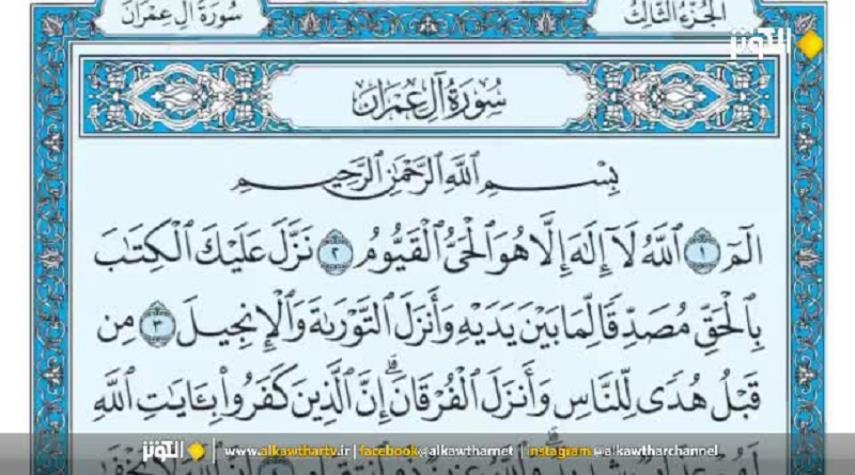 الجزء الثالث
سورة آل عمران
الكوثر
سُورَةُ آلِ عِمْرَانَ
بِسْمِ اللَّهِ الرَّحْمَٰنِ الرَّحِيمِ
الٓمٓ ١ ٱللَّهُ لَآ إِلَٰهَ إِلَّا هُوَ ٱلْحَىُّ ٱلْقَيُّومُ ٢ نَزَّلَ عَلَيْكَ ٱلْكِتَٰبَ
بِٱلْحَقِّ مُصَدِّقًا لِّمَا بَيْنَ يَدَيْهِ وَأَنزَلَ ٱلتَّوْرَىٰةَ وَٱلْإِنجِيلَ ٣ مِن
قَبْلُ هُدًى لِّلنَّاسِ وَأَنزَلَ ٱلْفُرْقَانَ ۗ إِنَّ ٱلَّذِينَ كَفَرُوا۟ بِـَٔايَٰتِ ٱللَّهِ
الكوثر www.alkawthartv.ir | facebook@alkawtharnet | instagram@alkawtharchannel